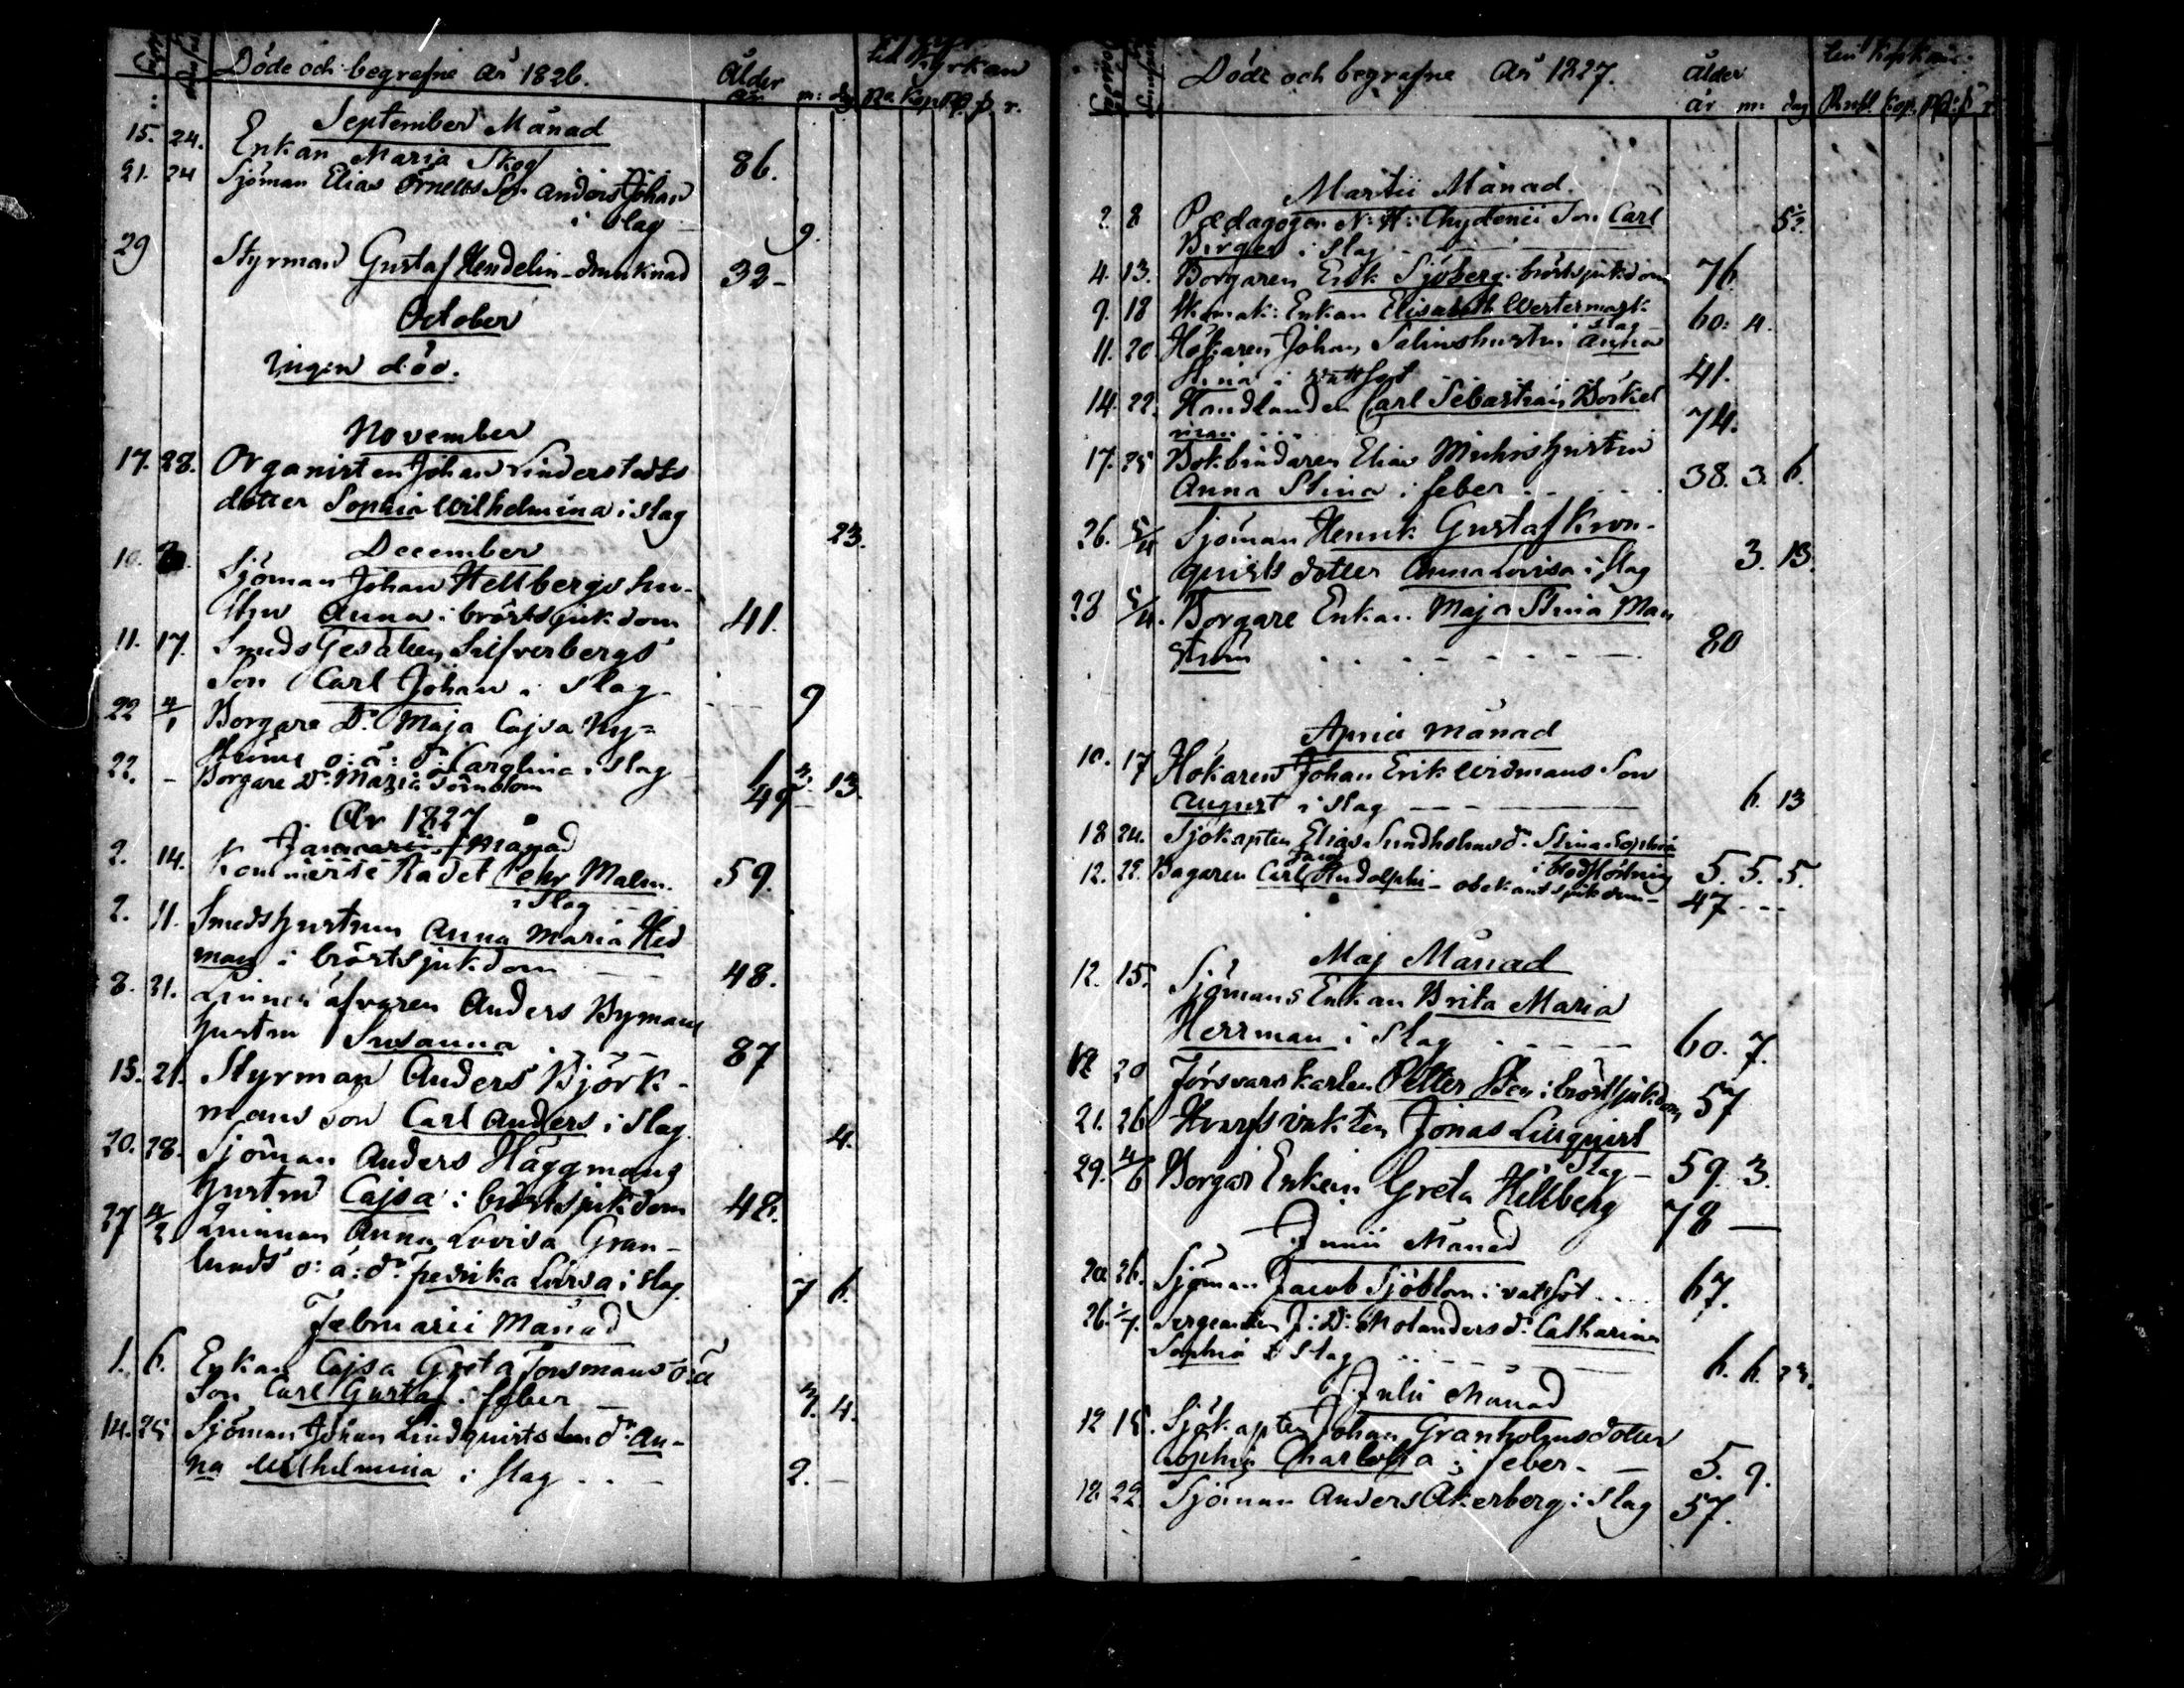 Döde och begrafne År 1826. Ålder till Kyrkan
år m: dag Ra. Kop.
September Månad
15. 24. Enkan Maria Skog 86.
21. 24 Sjöman Elias Örnells Son Anders Johan
i slag 9.
29 Styrman Gustaf Hendelin - drunknad 32 -
October
Ingen död.
November
17. 28. Organisten Johan Linderstedts
dotter Sophia Wilhelmina i slag 23.
December
10. Sjöman Johan Hellbergs hu-
stru Anna i bröstsjukdom 41.
11. 17. Smeds Gesällen Silfverbergs
Son Carl Johan i slag - 9
22 4/1 Borgare Dr Maja Cajsa Ny=
ströms o: ä: dr Carolina i slag 1 3. 13.
22. - Borgare Dr Maria Törnblom 49 -
År 1827
Januarii Månad
2. 14. Kommerse Rådet Pehr Malm. 59.
i slag
2. 11. Smedshustrun Anna Maria Hed
man i bröstsjukdom 48.
8. 21. Anders Bymans
hustru Susanna 87
13. 21. Styrman Anders Björk-
mans son Carl Anders i slag. 4.
20. 28. Sjöman Anders Häggmans
hustru Cajsa i bröstsjukdom 48.
27 4/2 Quinnan Anna Lovisa Gran-
lunds o: ä: dr Fredrika Lovisa i slag. 7 6.
Februarii Månad
1. 6. Enkan Cajsa Greta Forsmans o: ä
Son Carl Gustaf i feber - 7. 4.
14. 25. Sjöman Johan Lindquists dr An-
na Wilhelmina i slag . . - 2. -
Döde och begrafne År 1827. Ålder
år m: dag Rubl. Kop.
Martii Månad.
2. 8 Pædagogen N: H: Chydenii Son Carl
Birger i slag
4. 13. Borgaren Erik Sjöberg i bröstsjukdom 76
9. 18 Enkan Elisabeth Westermark 60. 4.
slag -
11. 20 Hökaren Johan Salins hustru Anna
Stina i vattsot 41.
14. 22. Handlanden Carl Sebastian Börkel
man . . . 74.
17. 25 Bokbindaren Elias Michis hustru
Anna Stina i feber . . . 38. 3. 6.
26. 5/4 Sjöman Henrik Gustaf Kron-
quists dotter Anna Lovisa i slag 3. 13.
28 5/4. Borgare Enkan Maja Stina Man
ström 80
April månad
10. 17 Hökaren Johan Erik Widmans Son
August i slag 6. 13
18 24. Sjökapten Elias Sundholms dr Stina Sophia
i blodstörtning 5. 5. 5.
12. 22. Bagaren Carl Rudolphi - obekant sjukdom - 47 - - -
Maj Månad
12. 15. Sjömans Enkan Brita Maria
Herrman i slag 60. 7.
20 Försvarskarlen Petter Sten i bröstsjukdom 57
21. 26 Hvarfsvakten Jonas Lilquist
slag - 59. 3.
29. 4/6 Borgar Enkan Greta Hellberg 78 -
Junii Månad
20 26. Sjöman Jacob Sjöblom i vattsot . . . 67.
26. 1/7. Sergeanten J: D: Molanders dr Catharina
Sophia i slag 6. 6. 23.
Julii Månad
12 15. Sjökapten Johan Granholms dotter
Sophia Charlotta i feber - - 5. 9.
18. 22. Sjöman Anders Åkerberg i slag 57.